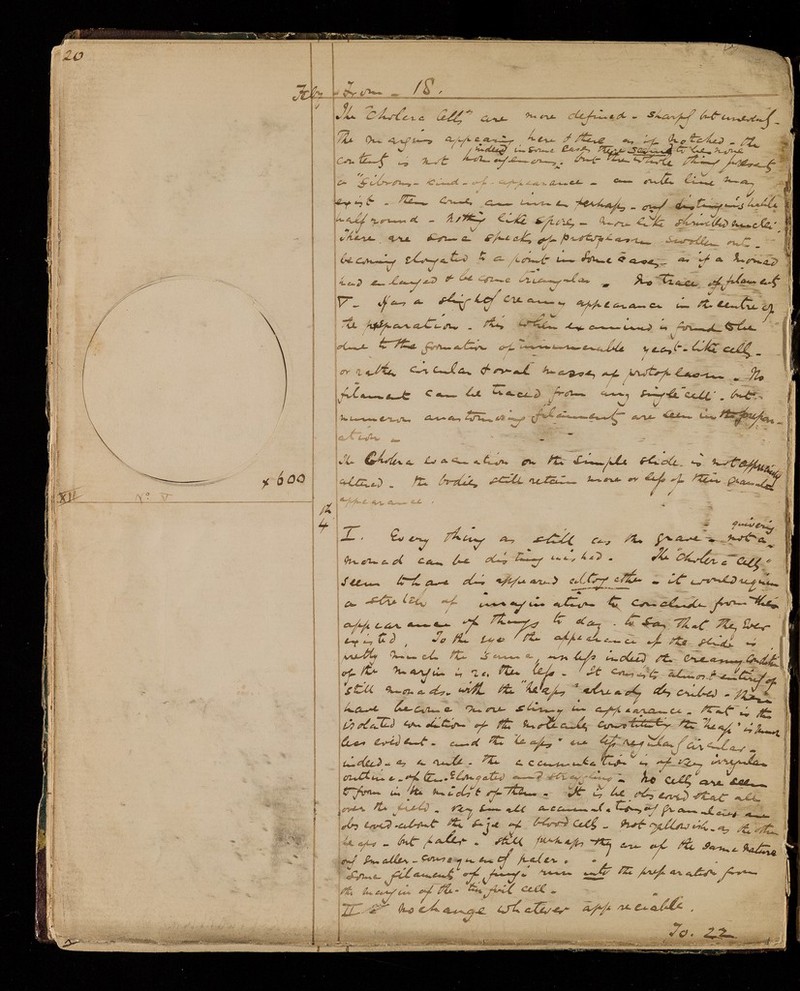 20
Feby From - 18.
The "Cholera Cells" are more defined - sharply but unevenly -
The margins appearing here & there as if notched - the
indeed in some cases there seemed to be none
contents is not homogeneous, but the whole thing presents
a "fibrous - kind - of - appearance - an outer line may
exist - then comes an inner perhaps - only distinguishable
half round - nothing like spores - more like shrivelled nuclei.
There are some specks of protoplasm swollen out -
becoming elongated to a point in some cases - as if a monad
had enlarged & become triangular - No trace of filaments
V - has a slightly creamy appearance in the centre of
the preparation - this when examined is found to be
due to the formation of innumerable yeast-like cells -
or rather circular & oval masses of protoplasm - No
filament can be traced from any single cell - but
numerous anastomosing filaments are seen in the prepar-
ation -
The Cholera evacuation on the simple slide is not appreciably
altered - the bodies still retain more or less of their granular
appearance.
x 600
XII No V
4th
I. Every thing as still as the grave - not a quivering
monad can be distinguished. The "Cholera Cells"
seem to have disappeared altogether - it would require
a stretch of imagination to conclude from the
appearance of things to day - to say that they ever
existed. To the eye the appearance of the slide is
pretty much the same, unless indeed the creamy condition
of the margin is rather less - It consists almost entirely of
still monads - with the "heaps" already described - these
have become more slimy in appearance - that is the
isolated condition of the molecules constituting the "heap" is much
less evident - and the heaps are less regularly circular -
indeed - as a rule - the accumulation is of very irregular
outline - often elongated and straggling - No cells are seen
to form in the midst of them - It is to be observed that all
over the field - very small accumulations of granules are
observed - about the size of blood cells - not yellowish - as the other
heaps - but paler - still perhaps they are of the same nature
only smaller - consequently paler.
Some filaments of fungi run into the preparation from
the margin of the - tin foil cell -
II no change whatever appreciable.
To. 22